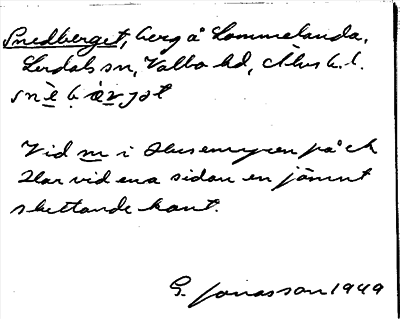 Snedberget, berg å Lommelanda,
Lerdals sn, Valbo hd, Älvs b. l.
snè bæ̀rjət
Vid m i Husemyren på ek
Har vid ena sidan en jämnt
sluttande kant.
G. Jonasson 1949